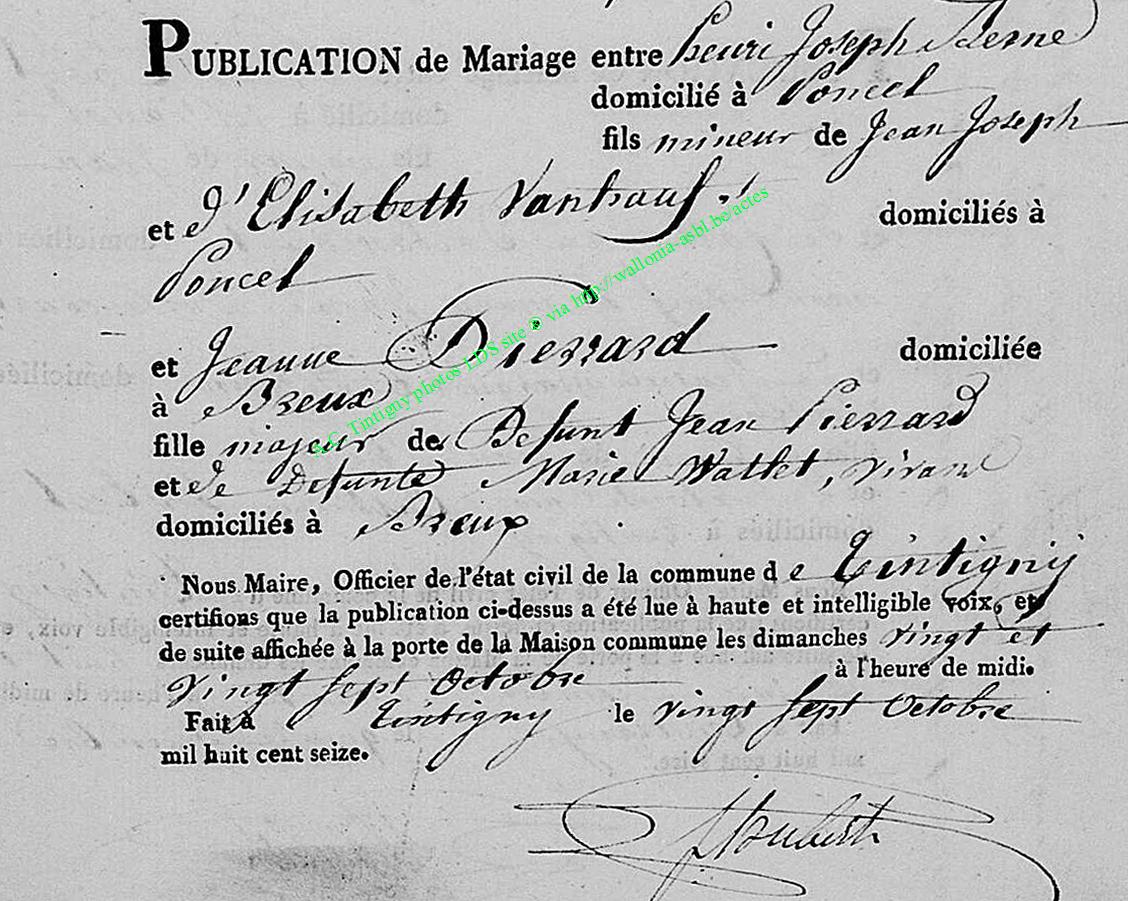 PUBLICATION de Mariage entre henri Joseph
domicilié à Poncel
fils mineur de Jean Joseph
et d'Elisabeth domiciliés à
Poncel
et Jeanne Pierrard domiciliée
à Breux
fille majeur de Defunt Jean Pierrard
et de Defunte Marie Watlet, vivant
domiciliés à Breux
Nous Maire, Officier de l'état civil de la commune d e Tintigny
certifions que la publication ci-dessus a été lue à haute et intelligible voix, et
de suite affichée à la porte de la Maison commune les dimanches vingt et
vingt sept Octobre à l'heure de midi.
Fait à Tintigny le vingt sept Octobre
mil huit cent seize.
A.C. Tintigny photos LDS site © via http://wallonia-asbl.be/actes